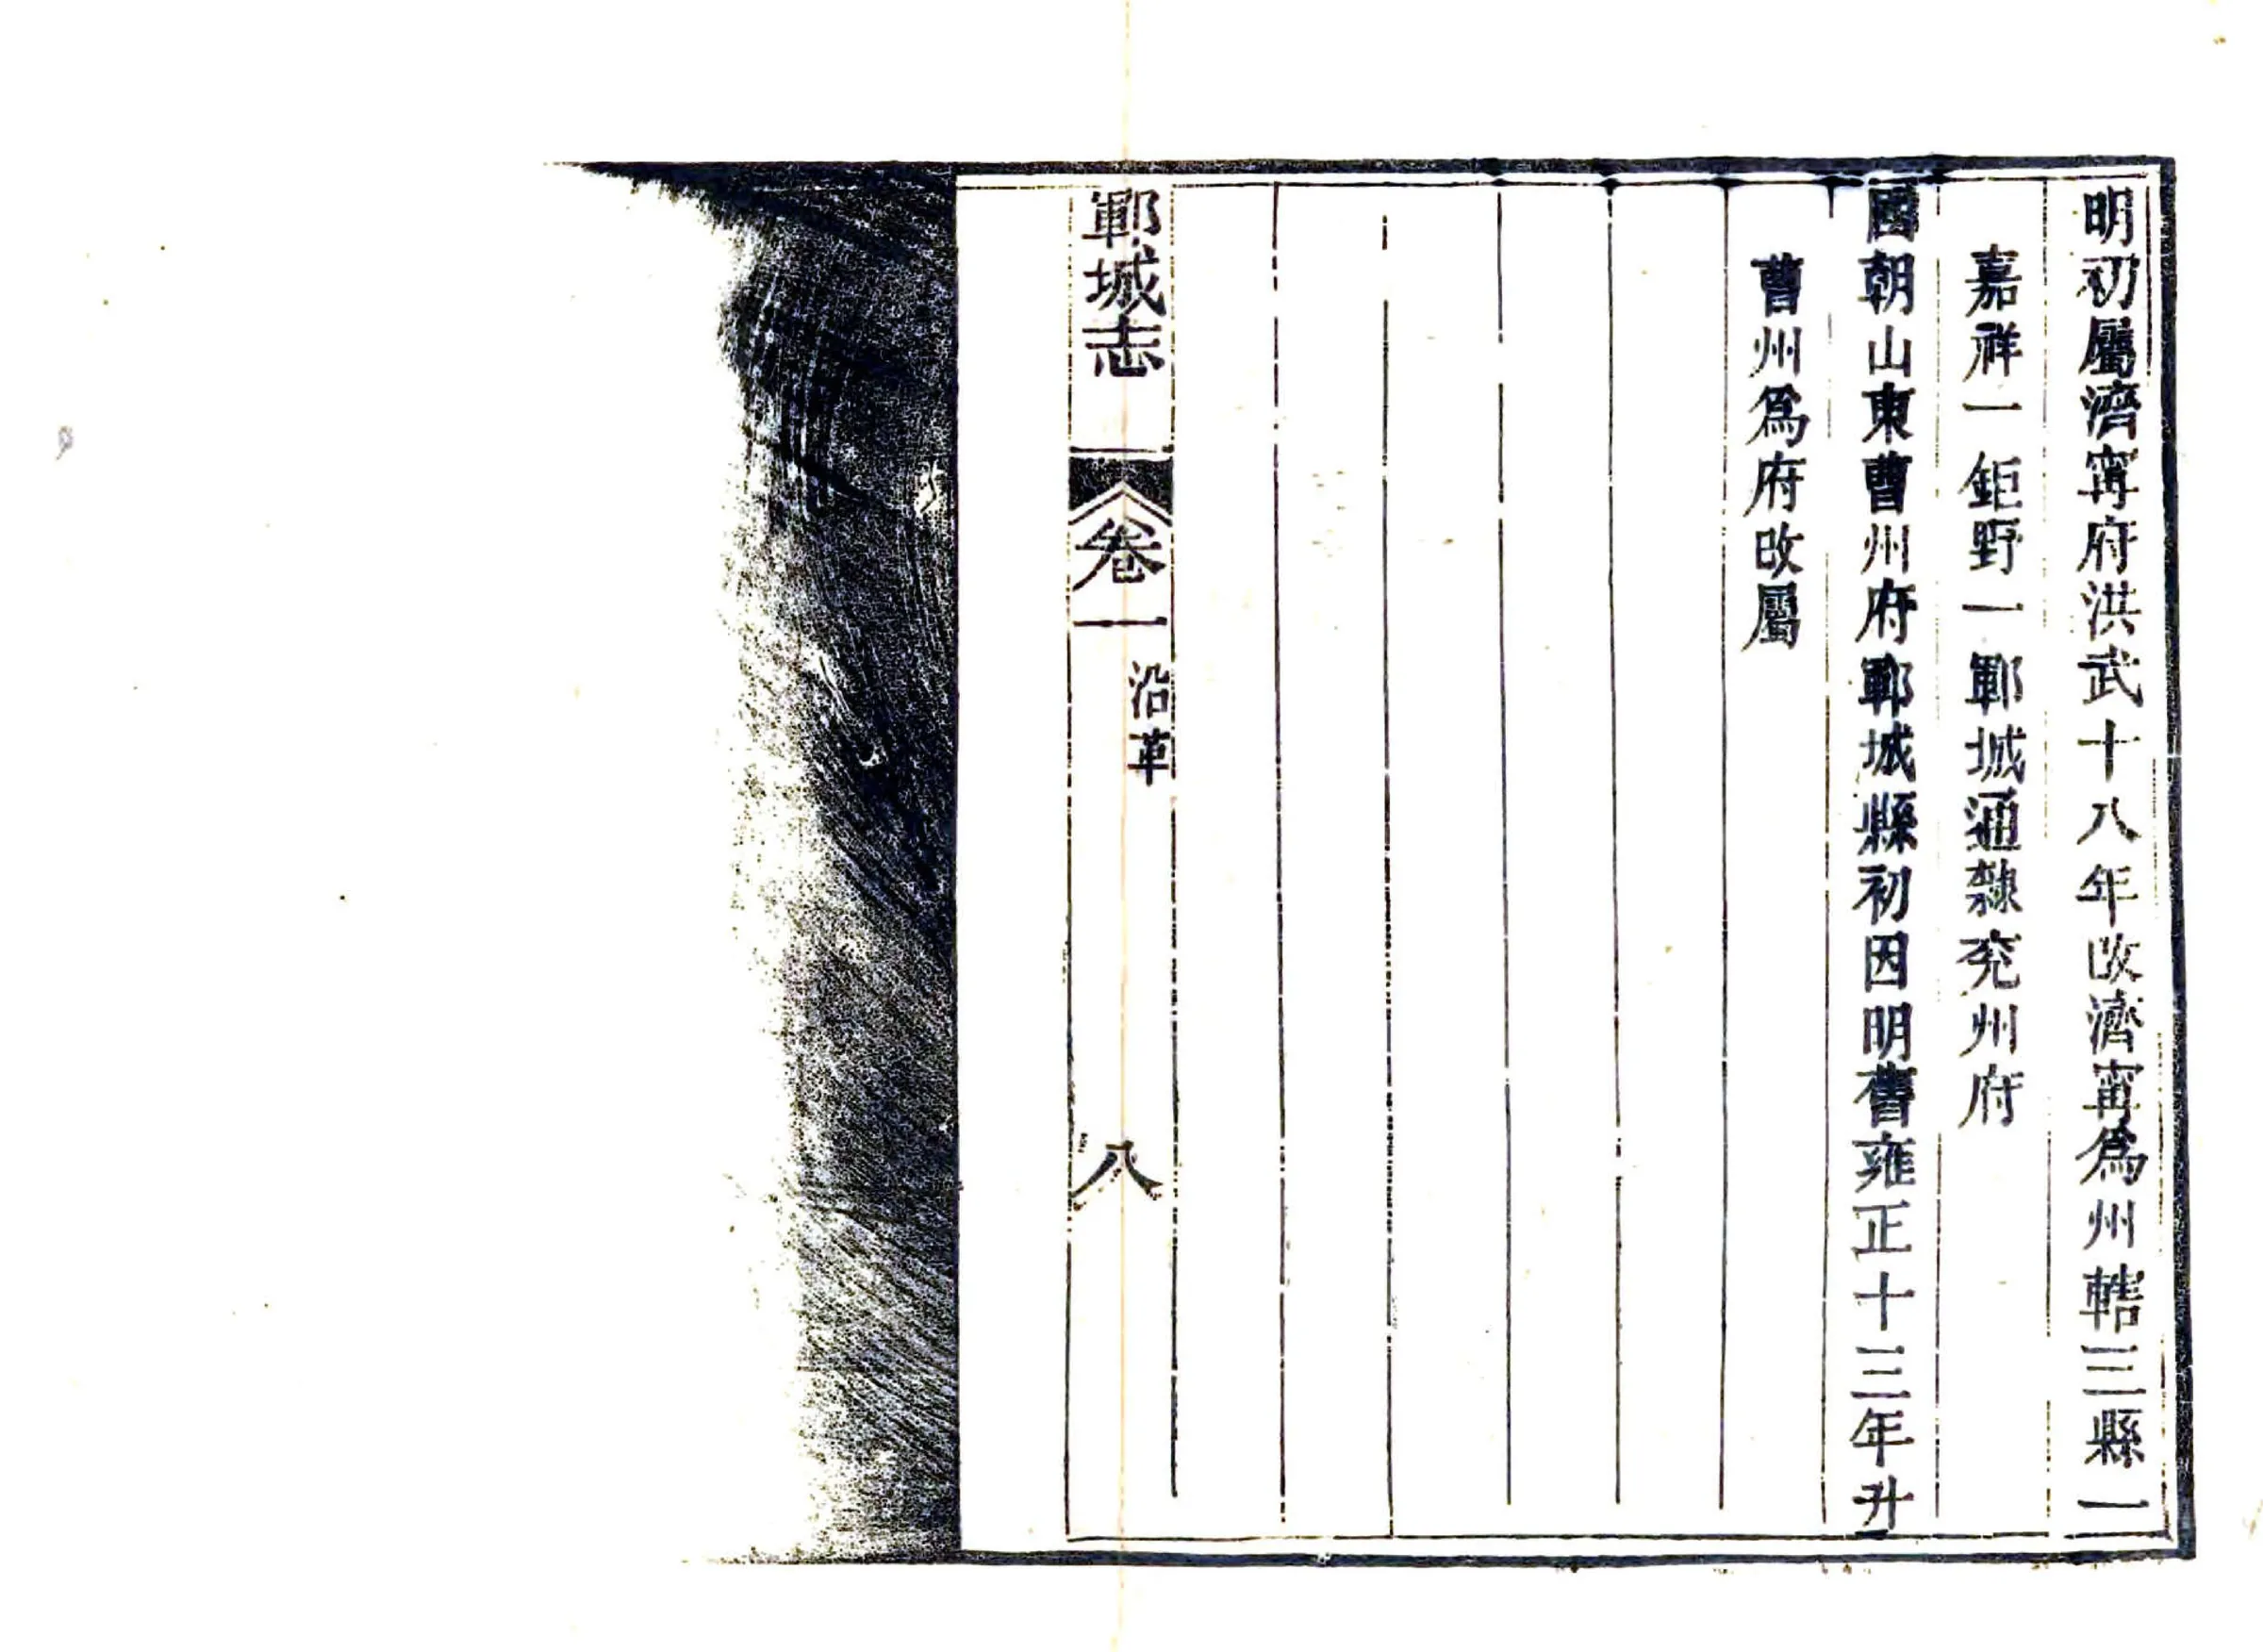 明初屬濟甯府洪武十八年改濟甯爲州轄三縣一
嘉祥一鉅野一鄆城通隸兖州府
國朝山東曹州府鄆城縣初因明舊雍正十三年升
曹州爲府改屬
鄆城志
卷一
沿革
八